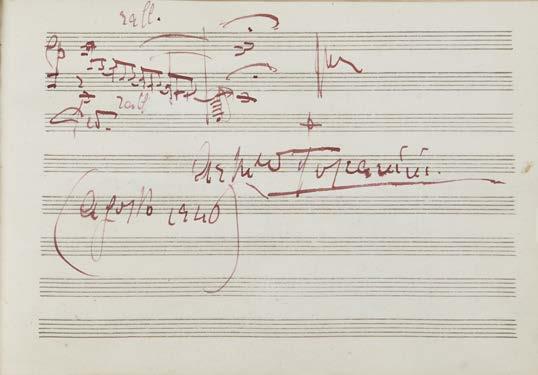 rall.
rall
Arturo Toscanini.
Agosto 1940